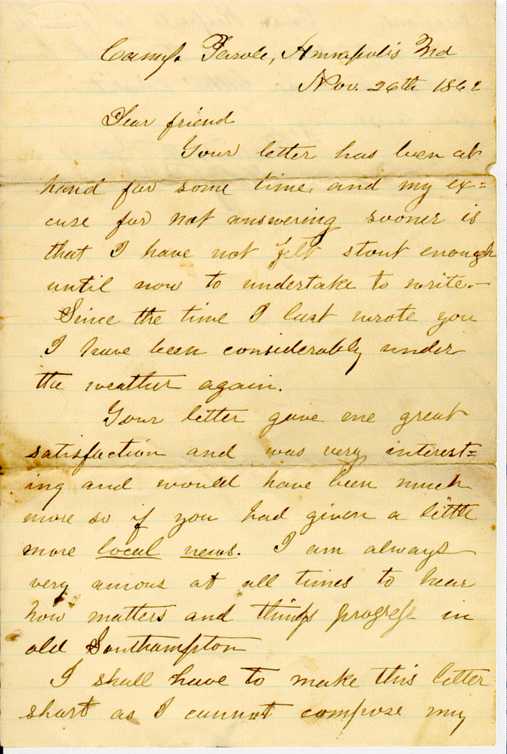 Camp Parole, Annapolis Md
Nov. 26th 1862
Dear friend
Your letter has been at
hand for some time, and my ex=
cuse for not answering sooner is
that I have not felt stout enough
until now to undertake to write.-
Since the time I last wrote you
I have been considerably under
the weather again.
Your letter gave me great
satisfaction and was very interest=
ing and would have been much
more so if you had given a little
more local news. I am always
very anious at all times to hear
how matters and things progress in
old Southampton
I shall have to make this letter
short as I cannot compose my